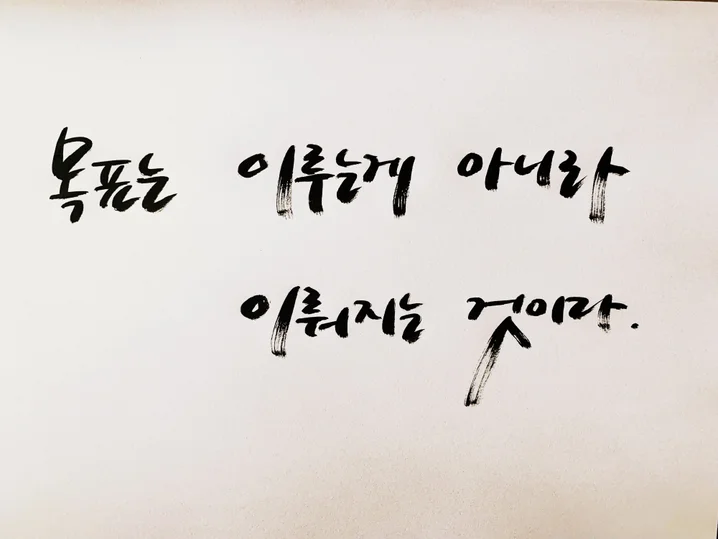 목표는 이루는게 아니라
이뤄지는 것이다.